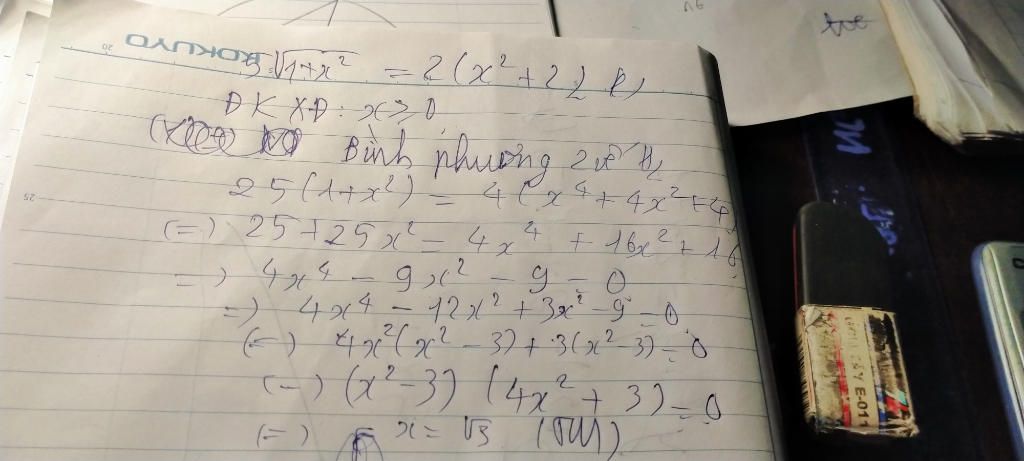 KOKUYO
5√1+x² = 2(x²+2)
ĐKXĐ: x≥0
Bình phương 2 vế
25(1+x²) = 4(x⁴+4x²+4)
(=) 25+25x² = 4x⁴ + 16x² + 16
=) 4x⁴ - 9x² - 9 = 0
=) 4x⁴ - 12x² + 3x² - 9 = 0
(=) 4x²(x² - 3) + 3(x² - 3) = 0
(=) (x² - 3) (4x² + 3) = 0
(=) x = √3 (TM)